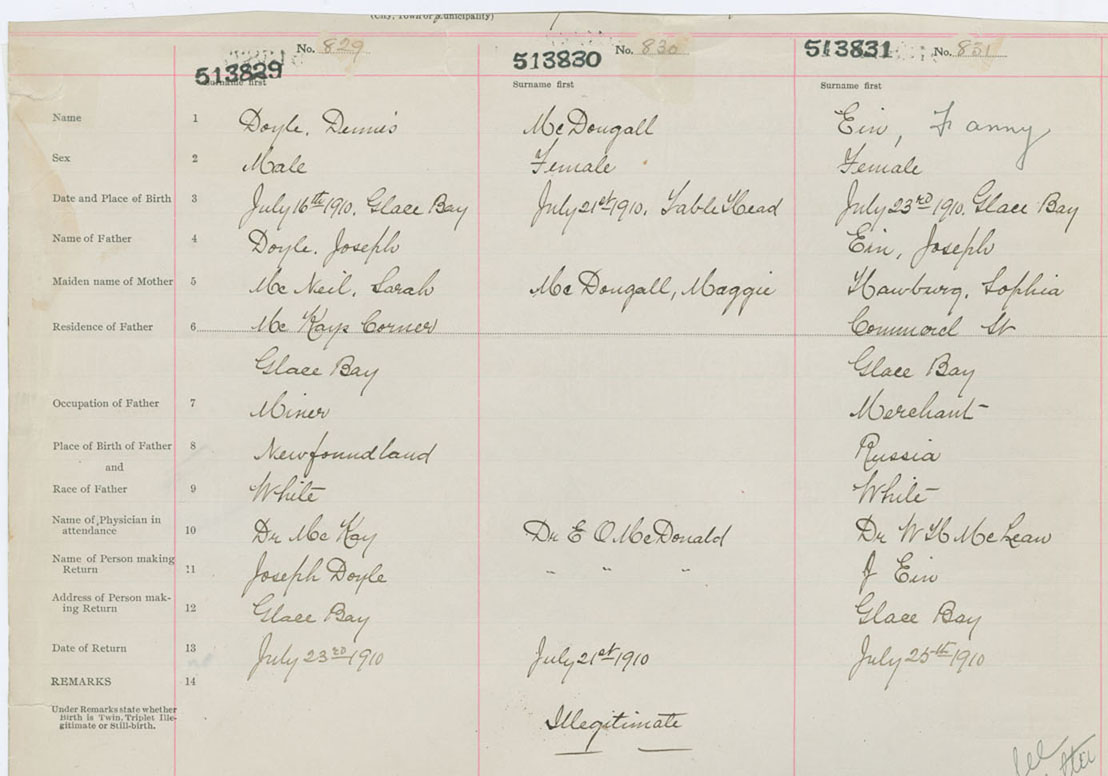 (City, Town or Municipality)
No. 829 No. 830 No. 831
513829 513830 513831
Surname first Surname first Surname first
Name 1 Doyle, Dennis McDougall Ein, Fanny
Sex 2 Male Female Female
Date and Place of Birth 3 July 16th 1910. Glace Bay July 21st 1910. Table Head July 23rd 1910. Glace Bay
Name of Father 4 Doyle. Joseph Ein, Joseph
Maiden name of Mother 5 Mc Neil, Sarah Mc Dougall, Maggie Hawburg, Sophia
Residence of Father 6 Mc Kays Corner Commercl St
Glace Bay Glace Bay
Occupation of Father 7 Miner Merchant
Place of Birth of Father 8 Newfoundland Russia
and
Race of Father 9 White White
Name of Physician in
attendance 10 Dr Mc Kay Dr E O McDonald Dr W H McLean
Name of Person making
Return 11 Joseph Doyle " " " J Ein
Address of Person mak-
ing Return 12 Glace Bay Glace Bay
Date of Return 13 July 23rd 1910 July 21st 1910 July 25th 1910
REMARKS 14
Under Remarks state whether
Birth is Twin, Triplet Ille-
gitimate or Still-birth.
Illegitimate